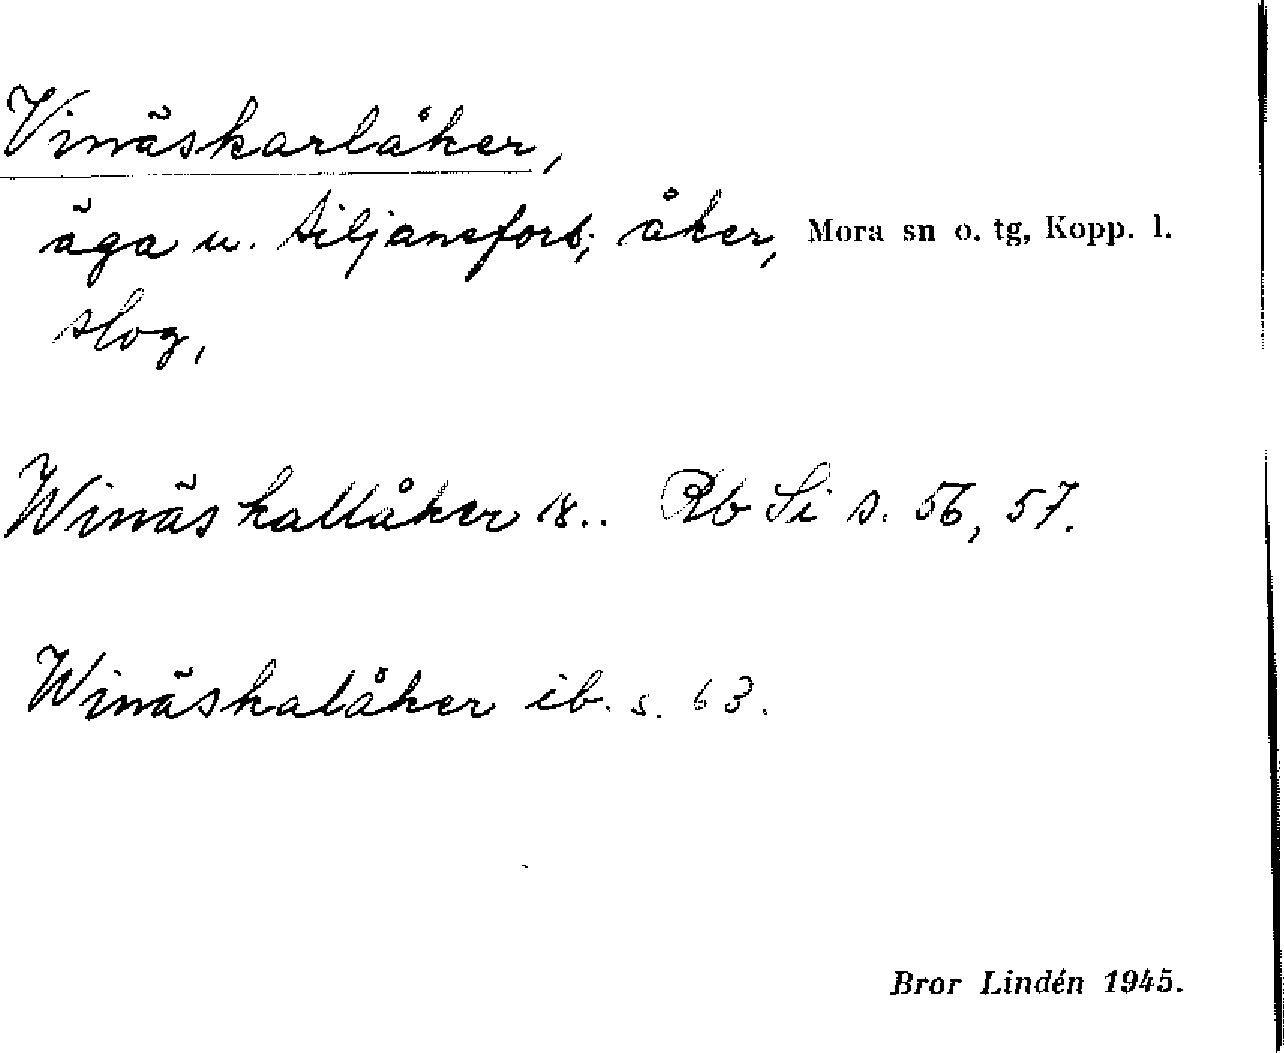 Vinäskarlåker,
äga u. Siljansfors; åker, Mora sn o. tg, Kopp. l.
slog,
Winäskallåker 18.. Rb Si s. 56, 57.
Winäskalåker ib. s. 63.
Bror Lindén 1945.